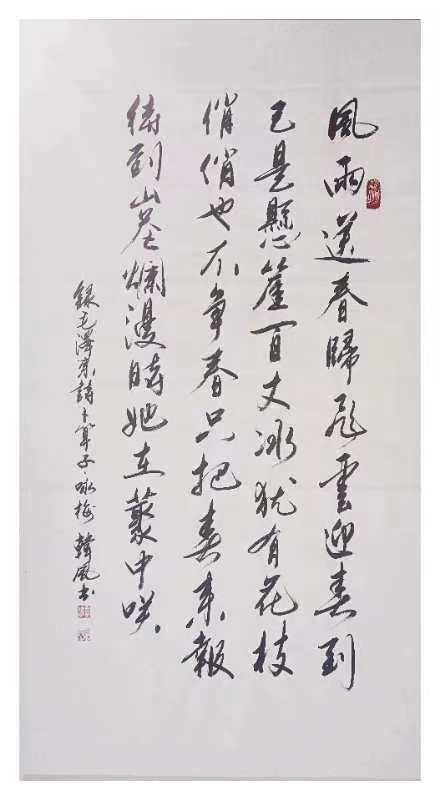 風雨送春歸飛雪迎春到
已是懸崖百丈冰猶有花枝
俏俏也不争春只把春來報
待到山花爛漫時她在叢中咲
録毛澤東詩卜算子·咏梅 韓風书